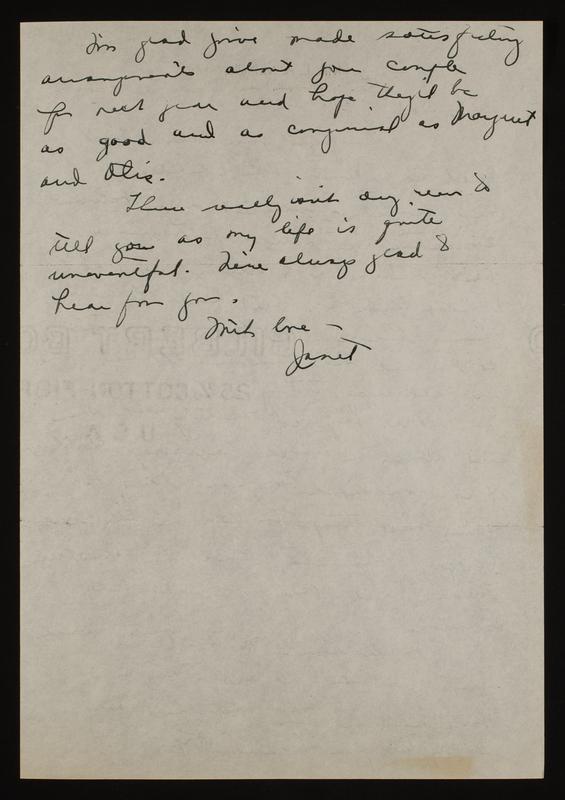 I'm glad you've made satisfactory
arrangements about your couple
for next year and hope they'll be
as good and as congenial as Margaret
and Otis.
There really isn't any news to
tell you as my life is quite
uneventful. I'm always glad to
hear from you.
With love –
Janet
25% COTTON FIBER
U S A